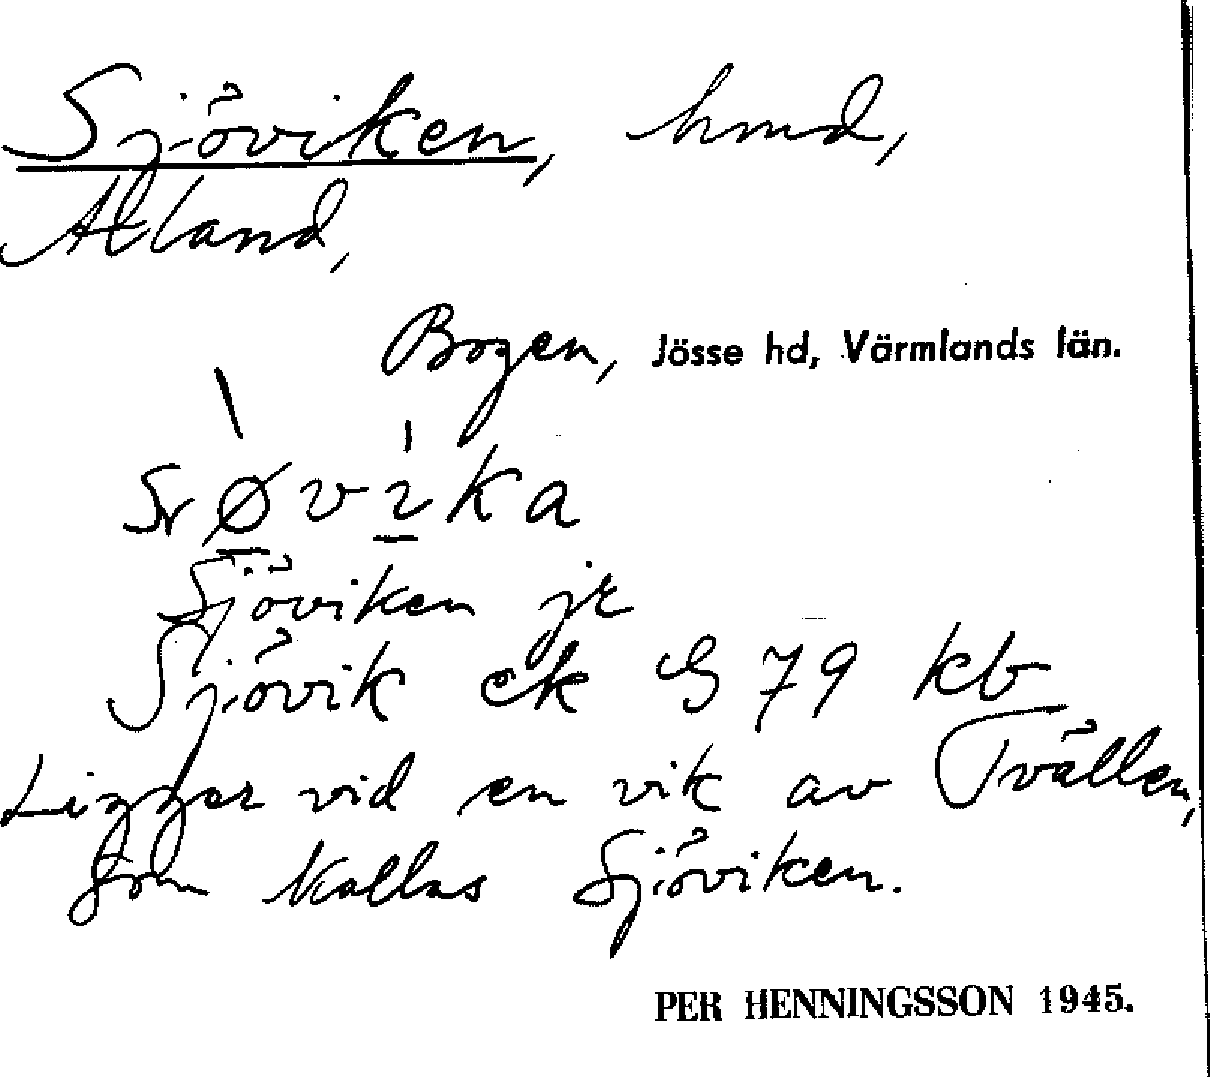 Sjöviken, hmd,
Älland,
Bogen, Jösse hd, Värmlands län.
Sjöviken jr
Sjövik ek S 79 kb
Ligger vid en vik av Tvällen,
som kallas Sjöviken.
PER HENNINGSSON 1945.